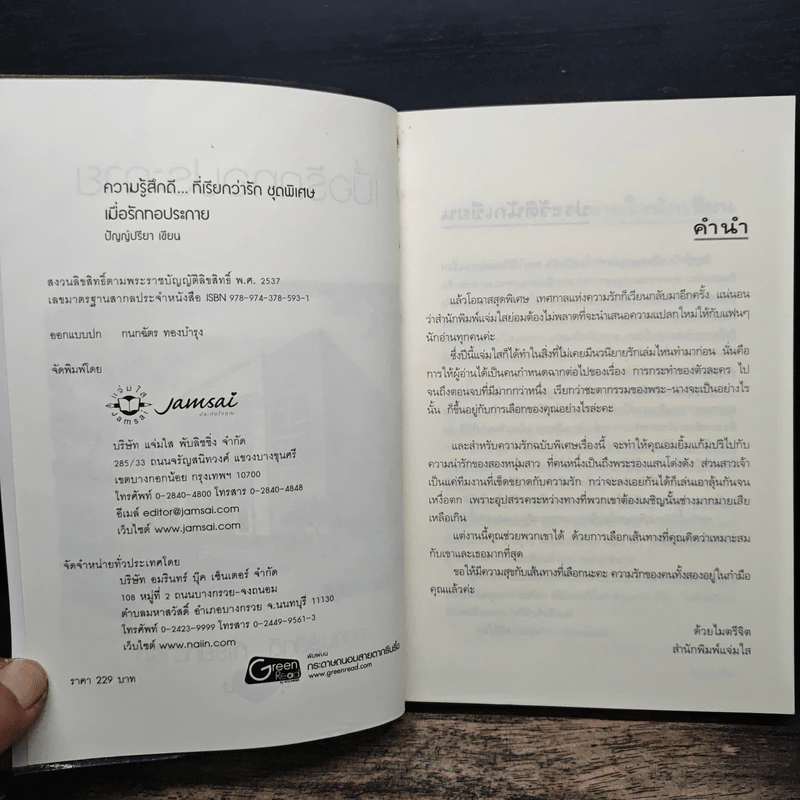 ความรู้สึกดี... ที่เรียกว่ารัก ชุดพิเศษ
เมื่อรักทอประกาย
ปัญญ์ปรียา เขียน
สงวนลิขสิทธิ์ตามพระราชบัญญัติลิขสิทธิ์ พ.ศ. 2537
เลขมาตรฐานสากลประจำหนังสือ ISBN 978-974-378-593-1
ออกแบบปก กนกฉัตร ทองบำรุง
จัดพิมพ์โดย
แจ่มใส
Jamsai
Jamsai
บริษัท แจ่มใส พับลิชชิ่ง จำกัด
285/33 ถนนจรัญสนิทวงศ์ แขวงบางขุนศรี
เขตบางกอกน้อย กรุงเทพฯ 10700
โทรศัพท์ 0-2840-4800 โทรสาร 0-2840-4848
อีเมล์ editor@jamsai.com
เว็บไซต์ www.jamsai.com
จัดจำหน่ายทั่วประเทศโดย
บริษัท อมรินทร์ บุ๊ค เซ็นเตอร์ จำกัด
108 หมู่ที่ 2 ถนนบางกรวย-จงถนอม
ตำบลมหาสวัสดิ์ อำเภอบางกรวย จ.นนทบุรี 11130
โทรศัพท์ 0-2423-9999 โทรสาร 0-2449-9561-3
เว็บไซต์ www.naiin.com
Green
Read
พิมพ์บน
กระดาษถนอมสายตากรีนรี้ด
www.greenread.com
ราคา 229 บาท
คำนำ
แล้วโอกาสสุดพิเศษ เทศกาลแห่งความรักก็เวียนกลับมาอีกครั้ง แน่นอน
ว่าสำนักพิมพ์แจ่มใสย่อมต้องไม่พลาดที่จะนำเสนอความแปลกใหม่ให้กับแฟนๆ
นักอ่านทุกคนค่ะ
ซึ่งปีนี้แจ่มใสก็ได้ทำในสิ่งที่ไม่เคยมีนวนิยายรักเล่มไหนทำมาก่อน นั่นคือ
การให้ผู้อ่านได้เป็นคนกำหนดฉากต่อไปของเรื่อง การกระทำของตัวละคร ไป
จนถึงตอนจบที่มีมากกว่าหนึ่ง เรียกว่าชะตากรรมของพระ-นางจะเป็นอย่างไร
นั้น ก็ขึ้นอยู่กับการเลือกของคุณอย่างไรล่ะคะ
และสำหรับความรักฉบับพิเศษเรื่องนี้ จะทำให้คุณอมยิ้มแก้มปริไปกับ
ความน่ารักของสองหนุ่มสาว ที่คนหนึ่งเป็นถึงพระรองแสนโด่งดัง ส่วนสาวเจ้า
เป็นแค่ทีมงานที่เข็ดขยาดกับความรัก กว่าจะลงเอยกันได้ก็เล่นเอาลุ้นกันจน
เหงื่อตก เพราะอุปสรรคระหว่างทางที่พวกเขาต้องเผชิญนั้นช่างมากมายเสีย
เหลือเกิน
แต่งานนี้คุณช่วยพวกเขาได้ ด้วยการเลือกเส้นทางที่คุณคิดว่าเหมาะสม
กับเขาและเธอมากที่สุด
ขอให้มีความสุขกับเส้นทางที่เลือกนะคะ ความรักของคนทั้งสองอยู่ในกำมือ
คุณแล้วค่ะ
ด้วยไมตรีจิต
สำนักพิมพ์แจ่มใส